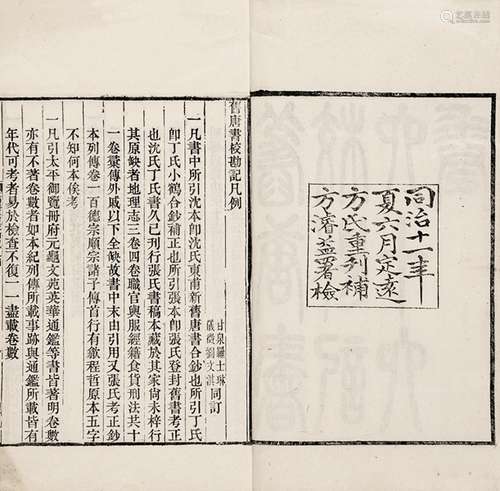 同治十一年
夏六月定遠
方氏重刊補
方濬益署檢
舊唐書校勘記凡例
甘泉羅士琳
儀徵劉文淇
同訂
一凡書中所引沈本卽沈氏東甫新舊唐書合鈔也所引丁氏
卽丁氏小鶴合鈔補正也所引張本卽張氏登封舊書考正
也沈氏丁氏書久已刊行張氏書稿本藏於其家尚未梓行
其原缺者地理志三卷四卷職官與服經籍食貨刑法共十
一卷藁傳外戚以下全缺故書中未由引用又張氏考正鈔
本列傳卷一百德宗順宗諸子傳首行有歙程哲原本五字
不知何本俟考
一凡引太平御覽冊府元龜文苑英華通鑑等書皆著明卷數
亦有不著卷數者如本紀列傳所載事跡與通鑑所載皆有
年代可考者易於檢查不復一一盡載卷數